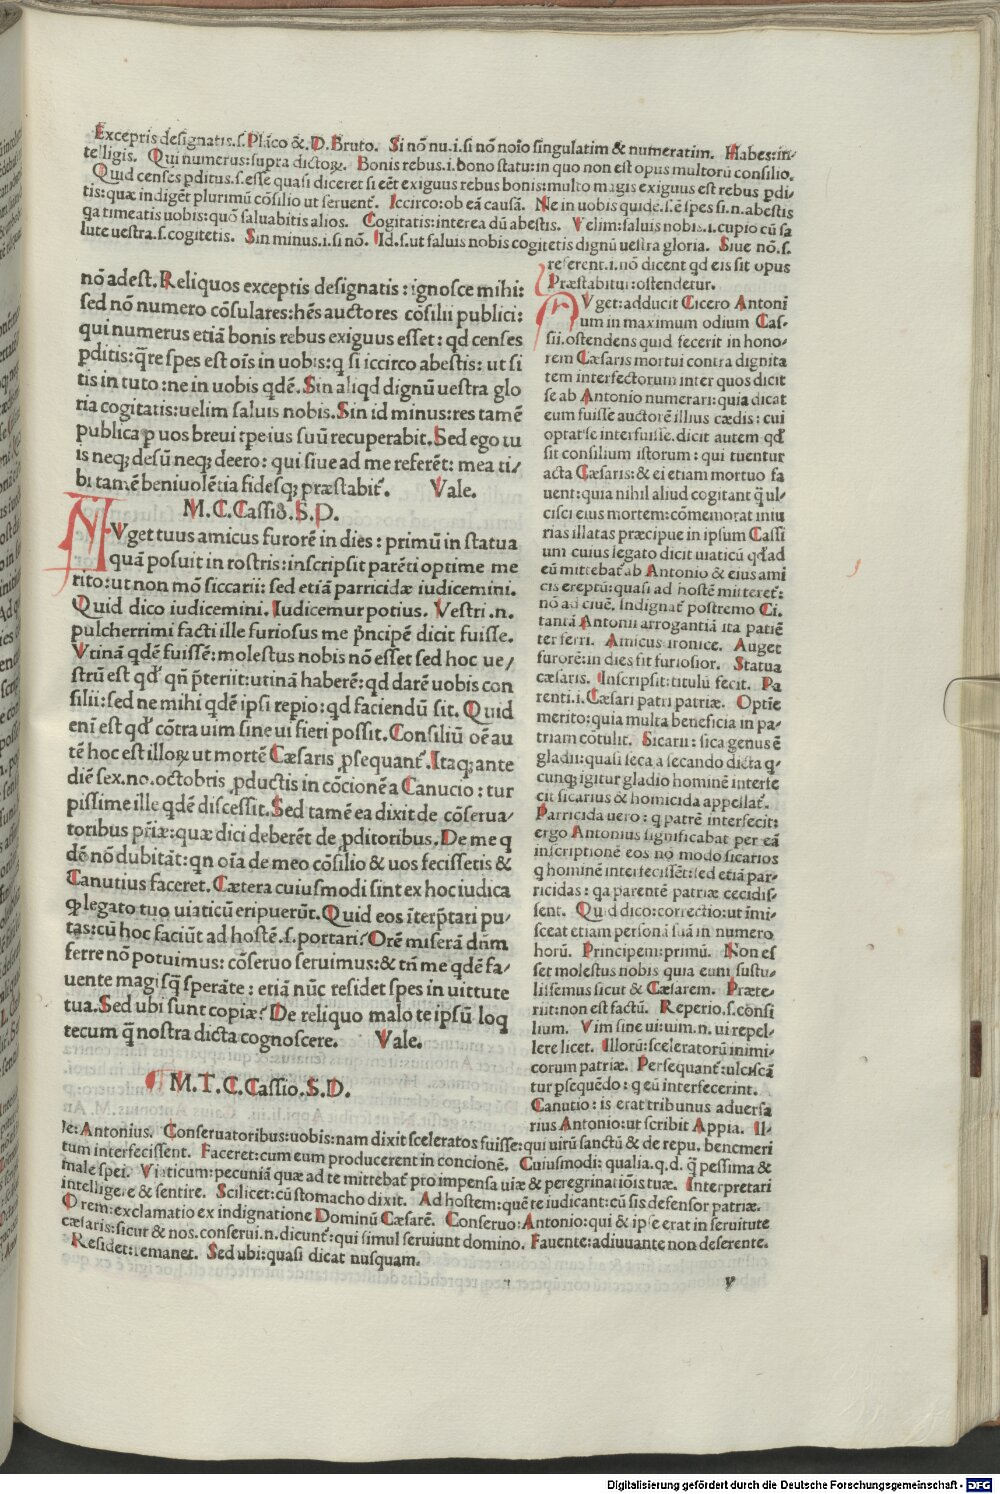 Exceptis designatis.s.Plãco &.D.Bruto. Si nõ nu.i.si nõ noĩo singulatim & numeratim. Habes:in-
telligis. Qui numerus:supra dictoꝝ. Bonis rebus.i.bono statu:in quo non est opus multorũ consilio.
Quid censes ꝑditus.s.esse quasi diceret si eẽt exiguus rebus bonis:multo magis exiguus est rebus ꝑdi-
tis:quæ indigẽt plurimũ cõsilio ut seruent᷑. Iccirco:ob eã causã. Ne in uobis quide.s.ẽ spes si.n.abestis
qa timeatis uobis:quõ saluabitis alios. Cogitatis:interea dũ abestis. Velim:saluis nobis.i.cupio cũ sa
lute uestra.s.cogitetis. Sin minus.i.si nõ. Id.s.ut saluis nobis cogitetis dignũ uestra gloria. Siue nõ.s.
referent.i.nõ dicent qd eis sit opus
Præstabitur:ostendetur.
nõ adest. Reliquos exceptis designatis:ignosce mihi:
sed nõ numero cõsulares:hẽs auctores cõsilii publici:
qui numerus etiã bonis rebus exiguus esset: qd censes
ꝑditis:q̃re spes est oĩs in uobis:q si iccirco abestis: ut si
tis in tuto:ne in uobis qdẽ. Sin aliqd dignũ uestra glo
ria cogitatis:uelim saluis nobis. Sin id minus:res tamẽ
publica ꝑ uos breui tꝑe ius suũ recuperabit. Sed ego tu
is neqꝫ desũ neqꝫ deero: qui siue ad me referẽt: mea ti-
bi tamẽ beniuolẽtia fidesqꝫ præstabit᷑. Vale.
M.C.Cassio.S.D.
AVget tuus amicus furorẽ in dies: primũ in statua
quã posuit in rostris:inscripsit parẽti optime me
rito:ut non mõ siccarii: sed etiã parricidæ iudicemini.
Quid dico iudicemini. Iudicemur potius. Vestri .n.
pulcherrimi facti ille furiosus me p̃ncipẽ dicit fuisse.
Vtinã qdẽ fuissẽ:molestus nobis nõ esset sed hoc ue-
strũ est qđ qñ p̃teriit:utinã haberẽ: qd darẽ uobis con
silii:sed ne mihi qdẽ ipsi reꝑio:qd faciendũ sit. Quid
eni est qđ cõtra uim sine ui fieri possit. Consiliũ oẽ au
tẽ hoc est illoꝝ ut mortẽ Cæsaris ꝓsequant᷑. Itaqꝫ ante
diẽ sex.no.octobris ꝓductis in cõcionẽ a Canucio: tur
pissime ille qdẽ discessit. Sed tamẽ ea dixit de cõserua-
toribus p̃riæ:quæ dici deberẽt de ꝓditoribus. De me q
dẽ nõ dubitãt: qn oĩa de meo cõsilio & uos fecissetis &
Canutius faceret. Cætera cuiusmodi sint ex hoc iudica
ꝙ legato tuo uiaticũ eripuerũt. Quid eos ĩterp̃tari pu-
tas:cũ hoc faciũt ad hostẽ.s.portari? Orẽ miserã dñm
ferre nõ potuimus: cõseruo seruimus:& tñ me qdẽ fa-
uente magisq̃ sperãte: etiã nũc residet spes in uittute
tua. Sed ubi sunt copiæ? De reliquo malo te ipsũ loq
tecum q̃ nostra dicta cognoscere. Vale.
M.T.C.Cassio.S.D.
AVget:adducit Cicero Antoni
um in maximum odium Cas-
sii.ostendens quid fecerit in hono-
rem Cæsaris mortui contra dignita
tem interfectorum inter quos dicit
se ab Antonio numerari: quia dicat
eum fuisse auctorẽ illius cædis: cui
optat se interfuisse. dicit autem qđ
sit consilium istorum: qui tuentur
acta Cæsaris: & ei etiam mortuo fa
uent:quia nihil aliud cogitant q̃ ul-
cisci eius mortem:cõmemorat iniu
rias illatas præcipue in ipsum Cassi
um cuius legato dicit uiaticũ qđ ad
eũ mittebat᷑ ab Antonio & eius ami
cis ereptũ:quasi ad hostẽ mitteret᷑:
nõ ad ciuẽ. Indignat᷑ postremo Ci.
tantã Antonii arrogantiã ita patiẽ
ter ferri. Amicus:ironice. Auget
furorẽ:in dies fit furiosior. Statua
cæsaris. Inscripsit:titulũ fecit. Pa
renti.i.Cæsari patri patriæ. Optie
merito:quia multa beneficia in pa-
triam cõtulit. Sicarii: sica genus ẽ
gladii:quasi seca a secando dicta q-
cunqꝫ igitur gladio hominẽ interfe
cit sicarius & homicida appellat᷑.
Parricida uero: q patrẽ interfecit:
ergo Antonius significabat per eã
inscriptionẽ eos nõ modo sicarios
q hominẽ interfecissẽt:sed etiã par-
ricidas: qa parentẽ patriæ cecidis-
sent. Quid dico:correctio:ut ĩmi-
sceat etiam personã suã in numero
horũ. Principem:primũ. Non es
set molestus nobis quia eum sustu-
lissemus sicut & Cæsarem. Præte-
riit:non est factũ. Reperio.s.consi
lium. Vim sine ui:uim.n.ui repel-
lere licet. Illorũ:sceleratorũ inimi-
corum patriæ. Persequant᷑:ulciscã
tur ꝑsequẽdo: q eũ interfecerint.
Canutio: is erat tribunus aduersa
rius Antonio:ut scribit Appia. Il-
le:Antonius. Conseruatoribus:uobis:nam dixit sceleratos fuisse:qui uirũ sanctũ & de repu. benemeri
tum interfecissent. Faceret:cum eum producerent in concionẽ. Cuiusmodi: qualia.q.d. q̃ pessima &
male spei. Viaticum:pecuniã quæ ad te mittebat᷑ pro impensa uiæ & peregrinatiõis tuæ. Interpretari
intelligere & sentire. Scilicet:cũ stomacho dixit. Ad hostem:quẽ te iudicant:cũ sis defensor patriæ.
Orem:exclamatio ex indignatione Dominũ Cæsarẽ. Conseruo:Antonio:qui & ipse erat in seruitute
cæsaris:sicut & nos.conserui.n.dicunt᷑:qui simul seruiunt domino. Fauente:adiuuante non deserente.
Residet:remanet. Sed ubi:quasi dicat nusquam.
y
Digitalisierung gefördert durch die Deutsche Forschungsgemeinschaft - DFG